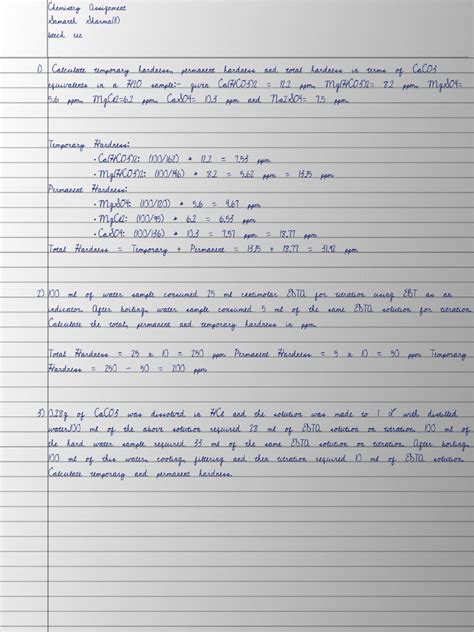 Chemistry Assignment
Samarth Sharma(11)
btech cce
1) Calculate temporary hardness, permanent hardness and total hardness in terms of CaCO3
equivalents in a H2O sample:- given Ca(HCO3)2 = 12.2 ppm, Mg(HCO3)2= 8.2 ppm, MgSO4=
5.6 ppm, MgCl2=6.2 ppm, CaSO4= 10.3 ppm and Na2SO4= 7.5 ppm.
Temporary Hardness:
• Ca(HCO3)2: (100/162) * 12.2 = 7.53 ppm
• Mg(HCO3)2: (100/146) * 8.2 = 5.62 ppm = 13.15 ppm
Permanent Hardness:
• MgSO4: (100/120) * 5.6 = 4.67 ppm
• MgCl2: (100/95) * 6.2 = 6.53 ppm
• CaSO4: (100/136) * 10.3 = 7.57 ppm = 18.77 ppm
Total Hardness = Temporary + Permanent = 13.15 + 18.77 = 31.92 ppm
2) 100 ml of water sample consumed 25 ml centimolar EDTA for titration using EBT as an
indicator. After boiling, water sample consumed 5 ml of the same EDTA solution for titration.
Calculate the total, permanent and temporary hardness in ppm.
Total Hardness = 25 x 10 = 250 ppm Permanent Hardness = 5 x 10 = 50 ppm Temporary
Hardness = 250 - 50 = 200 ppm
3) 0.28g of CaCO3 was dissolved in HCl and the solution was made to 1 L with distilled
water.100 ml of the above solution required 28 ml of EDTA solution on titration. 100 ml of
the hard water sample required 33 ml of the same EDTA solution on titration. After boiling,
100 ml of this water, cooling, filtering and then titration required 10 ml of EDTA solution.
Calculate temporary and permanent hardness.